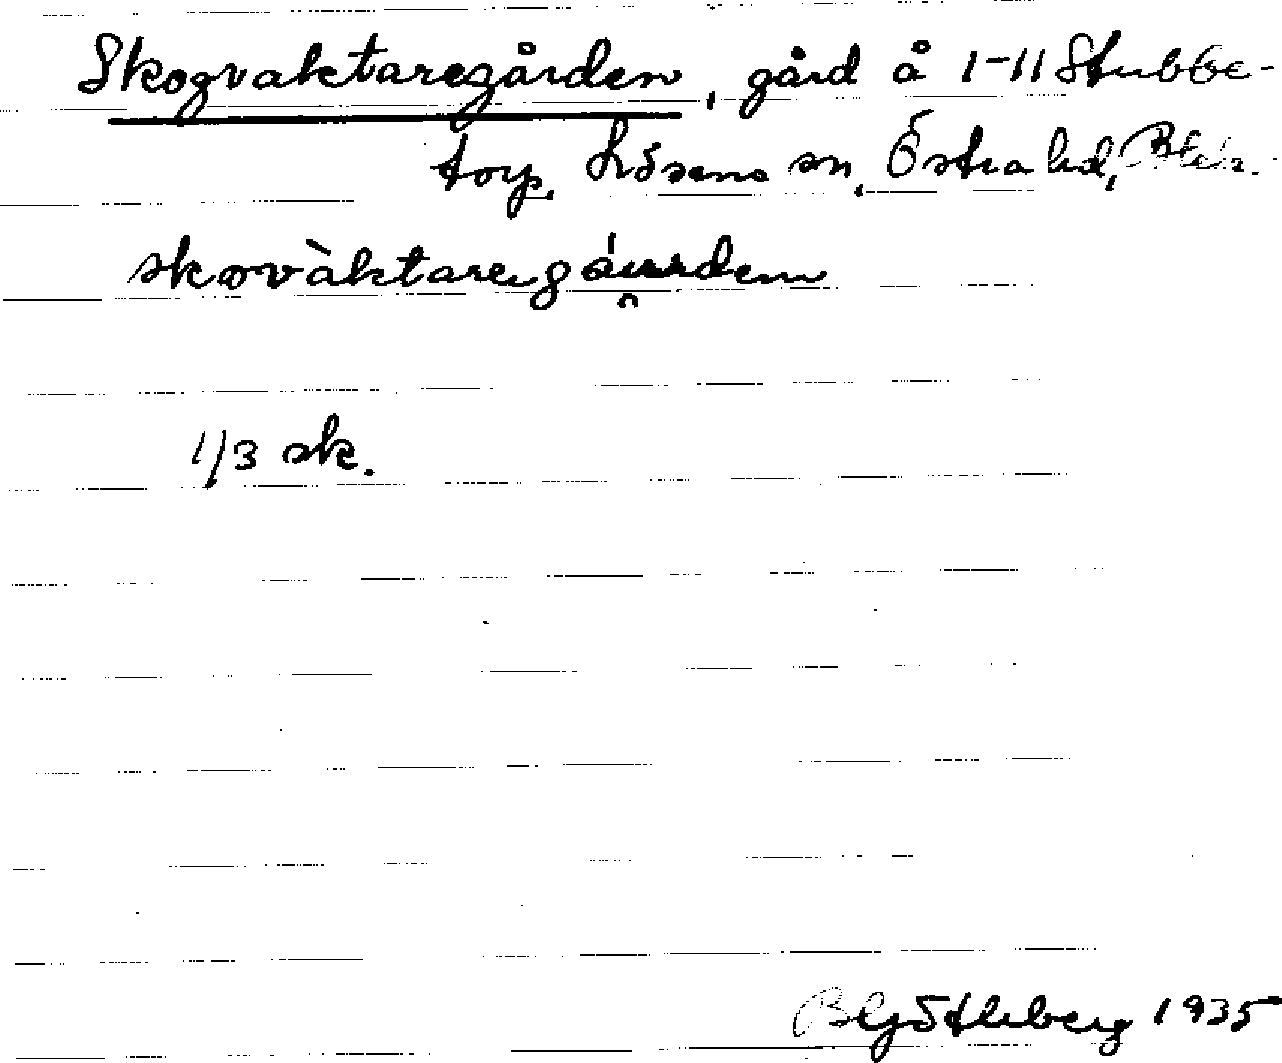 Skogvaktaregården, gård å 1-11 Stubbe-
torp, Lösens sn, Östra hd, Blek.
skovàktaregáurden
1/3 sk.
B Götleberg 1935